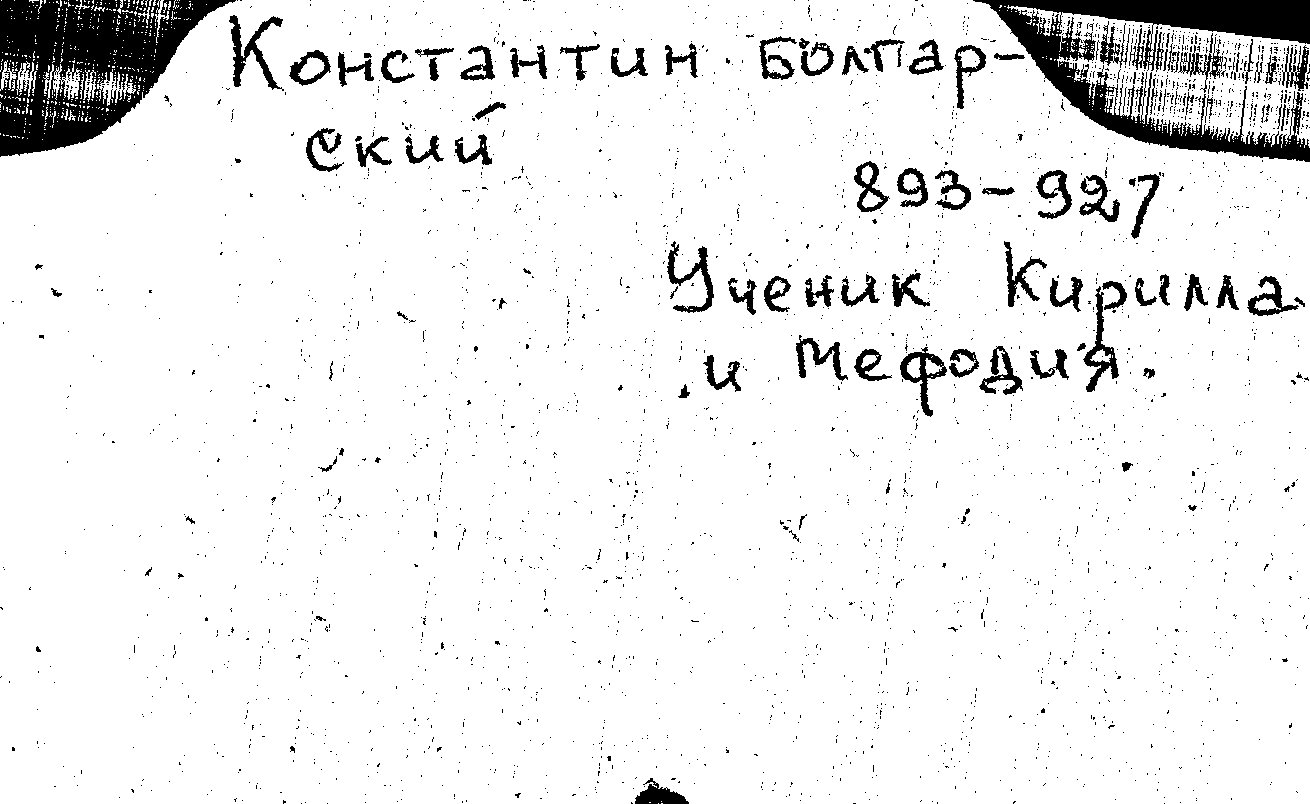 Константин Болгар-
ский
893-927
Ученик Кирилла
и Мефодия.